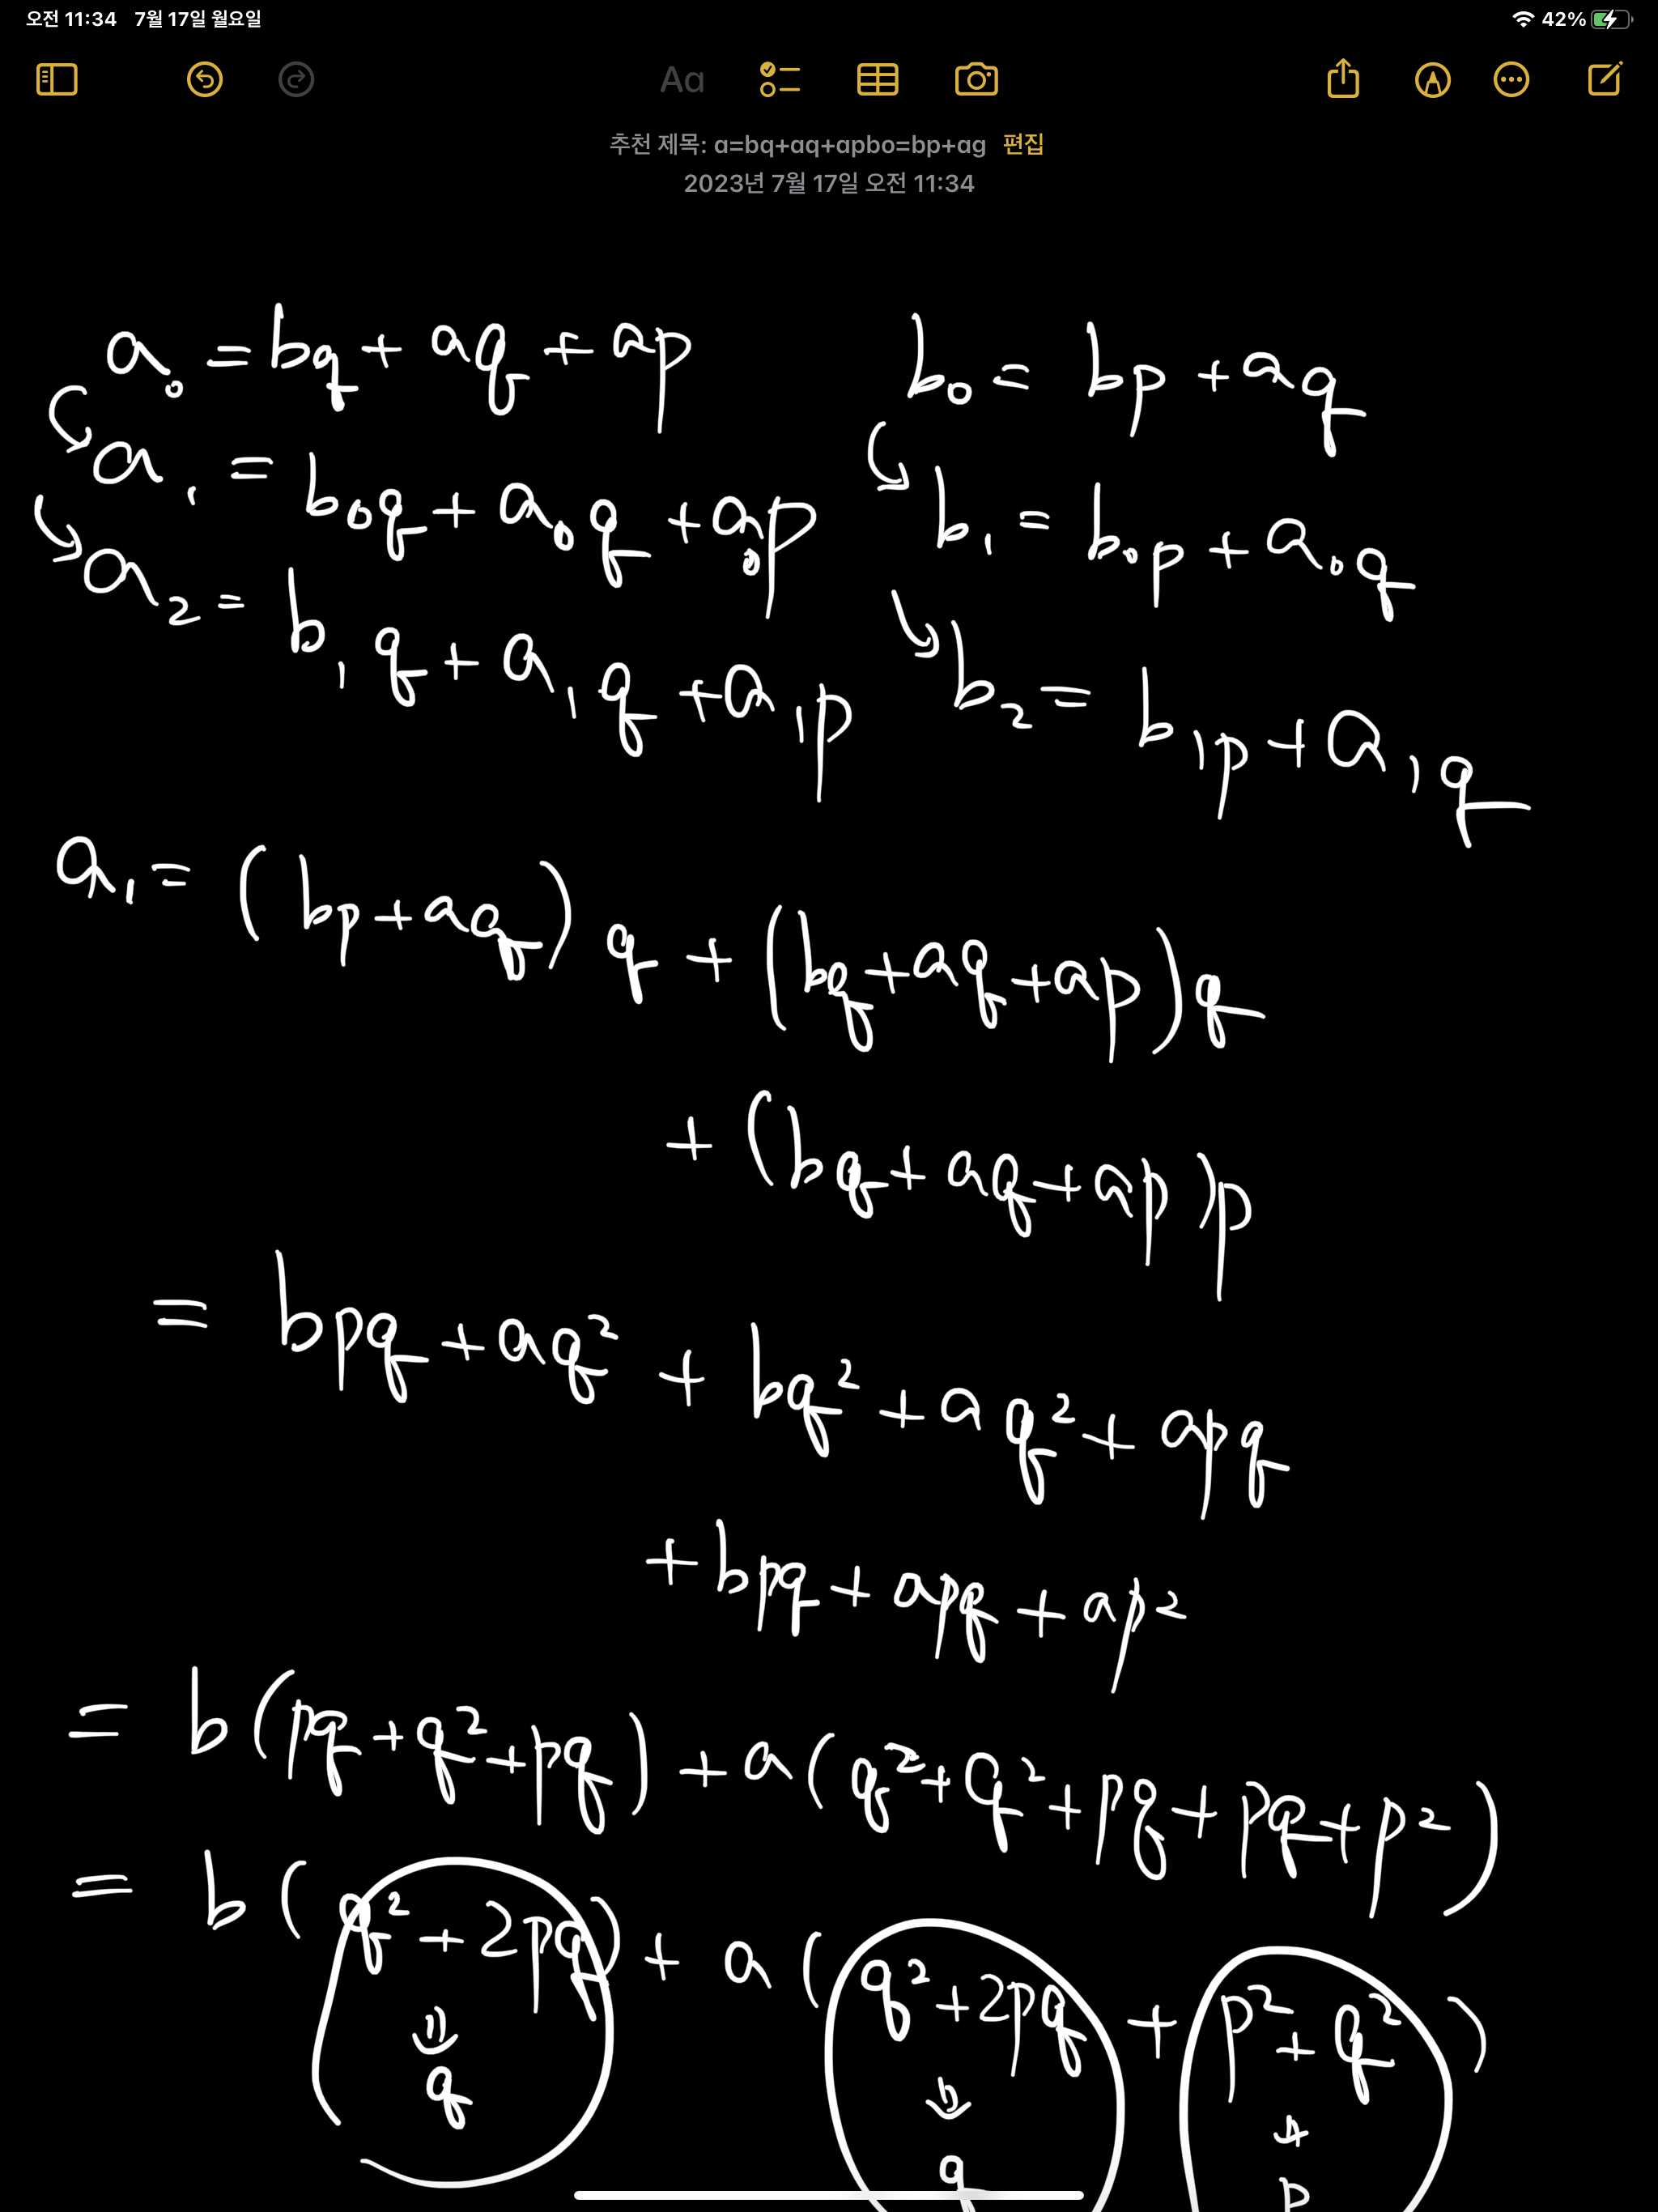 오전 11:34 7월 17일 월요일 42%
Aa
추천 제목: a=bq+aq+apbo=bp+ag 편집
2023년 7월 17일 오전 11:34
a₀ = bq + aq + ap b₀ = bp + aq
a₁ = b₀q + a₀q + a₀p b₁ = b₀p + a₀q
a₂ = b₁q + a₁q + a₁p b₂ = b₁p + a₁q
a₁ = (bp+aq)q + (bq+aq+ap)q
+ (bq+aq+ap)p
= bpq + aq² + bq² + aq² + apq
+ bpq + apq + ap²
= b(pq+q²+pq) + a(q²+q²+pq+pq+p²)
= b(q²+2pq) + a(q²+2pq + p²+q²)
⇓ ⇓ ↓
q q p